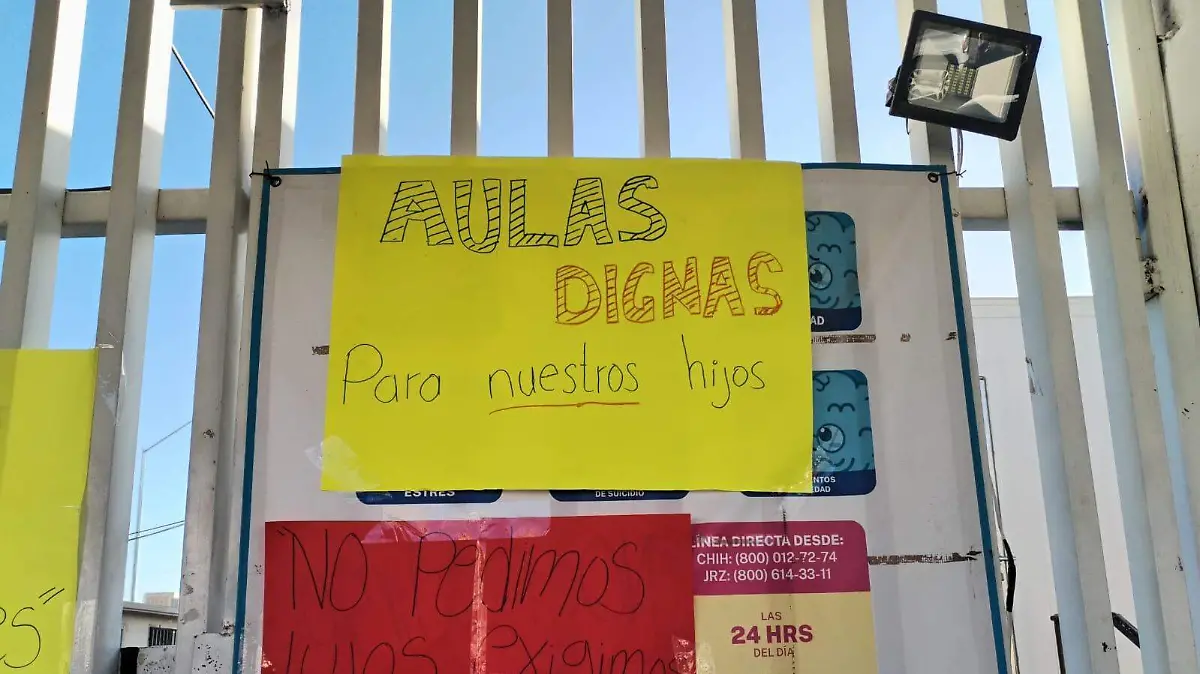 AULAS
DIGNAS
Para nuestros hijos
AD
NTOS
EDAD
ESTRÉS
DE SUICIDIO
"NO Pedimos
lujos exigimos
LÍNEA DIRECTA DESDE:
CHIH: (800) 012-72-74
JRZ: (800) 614-33-11
LAS
24 HRS
DEL DÍA
es"